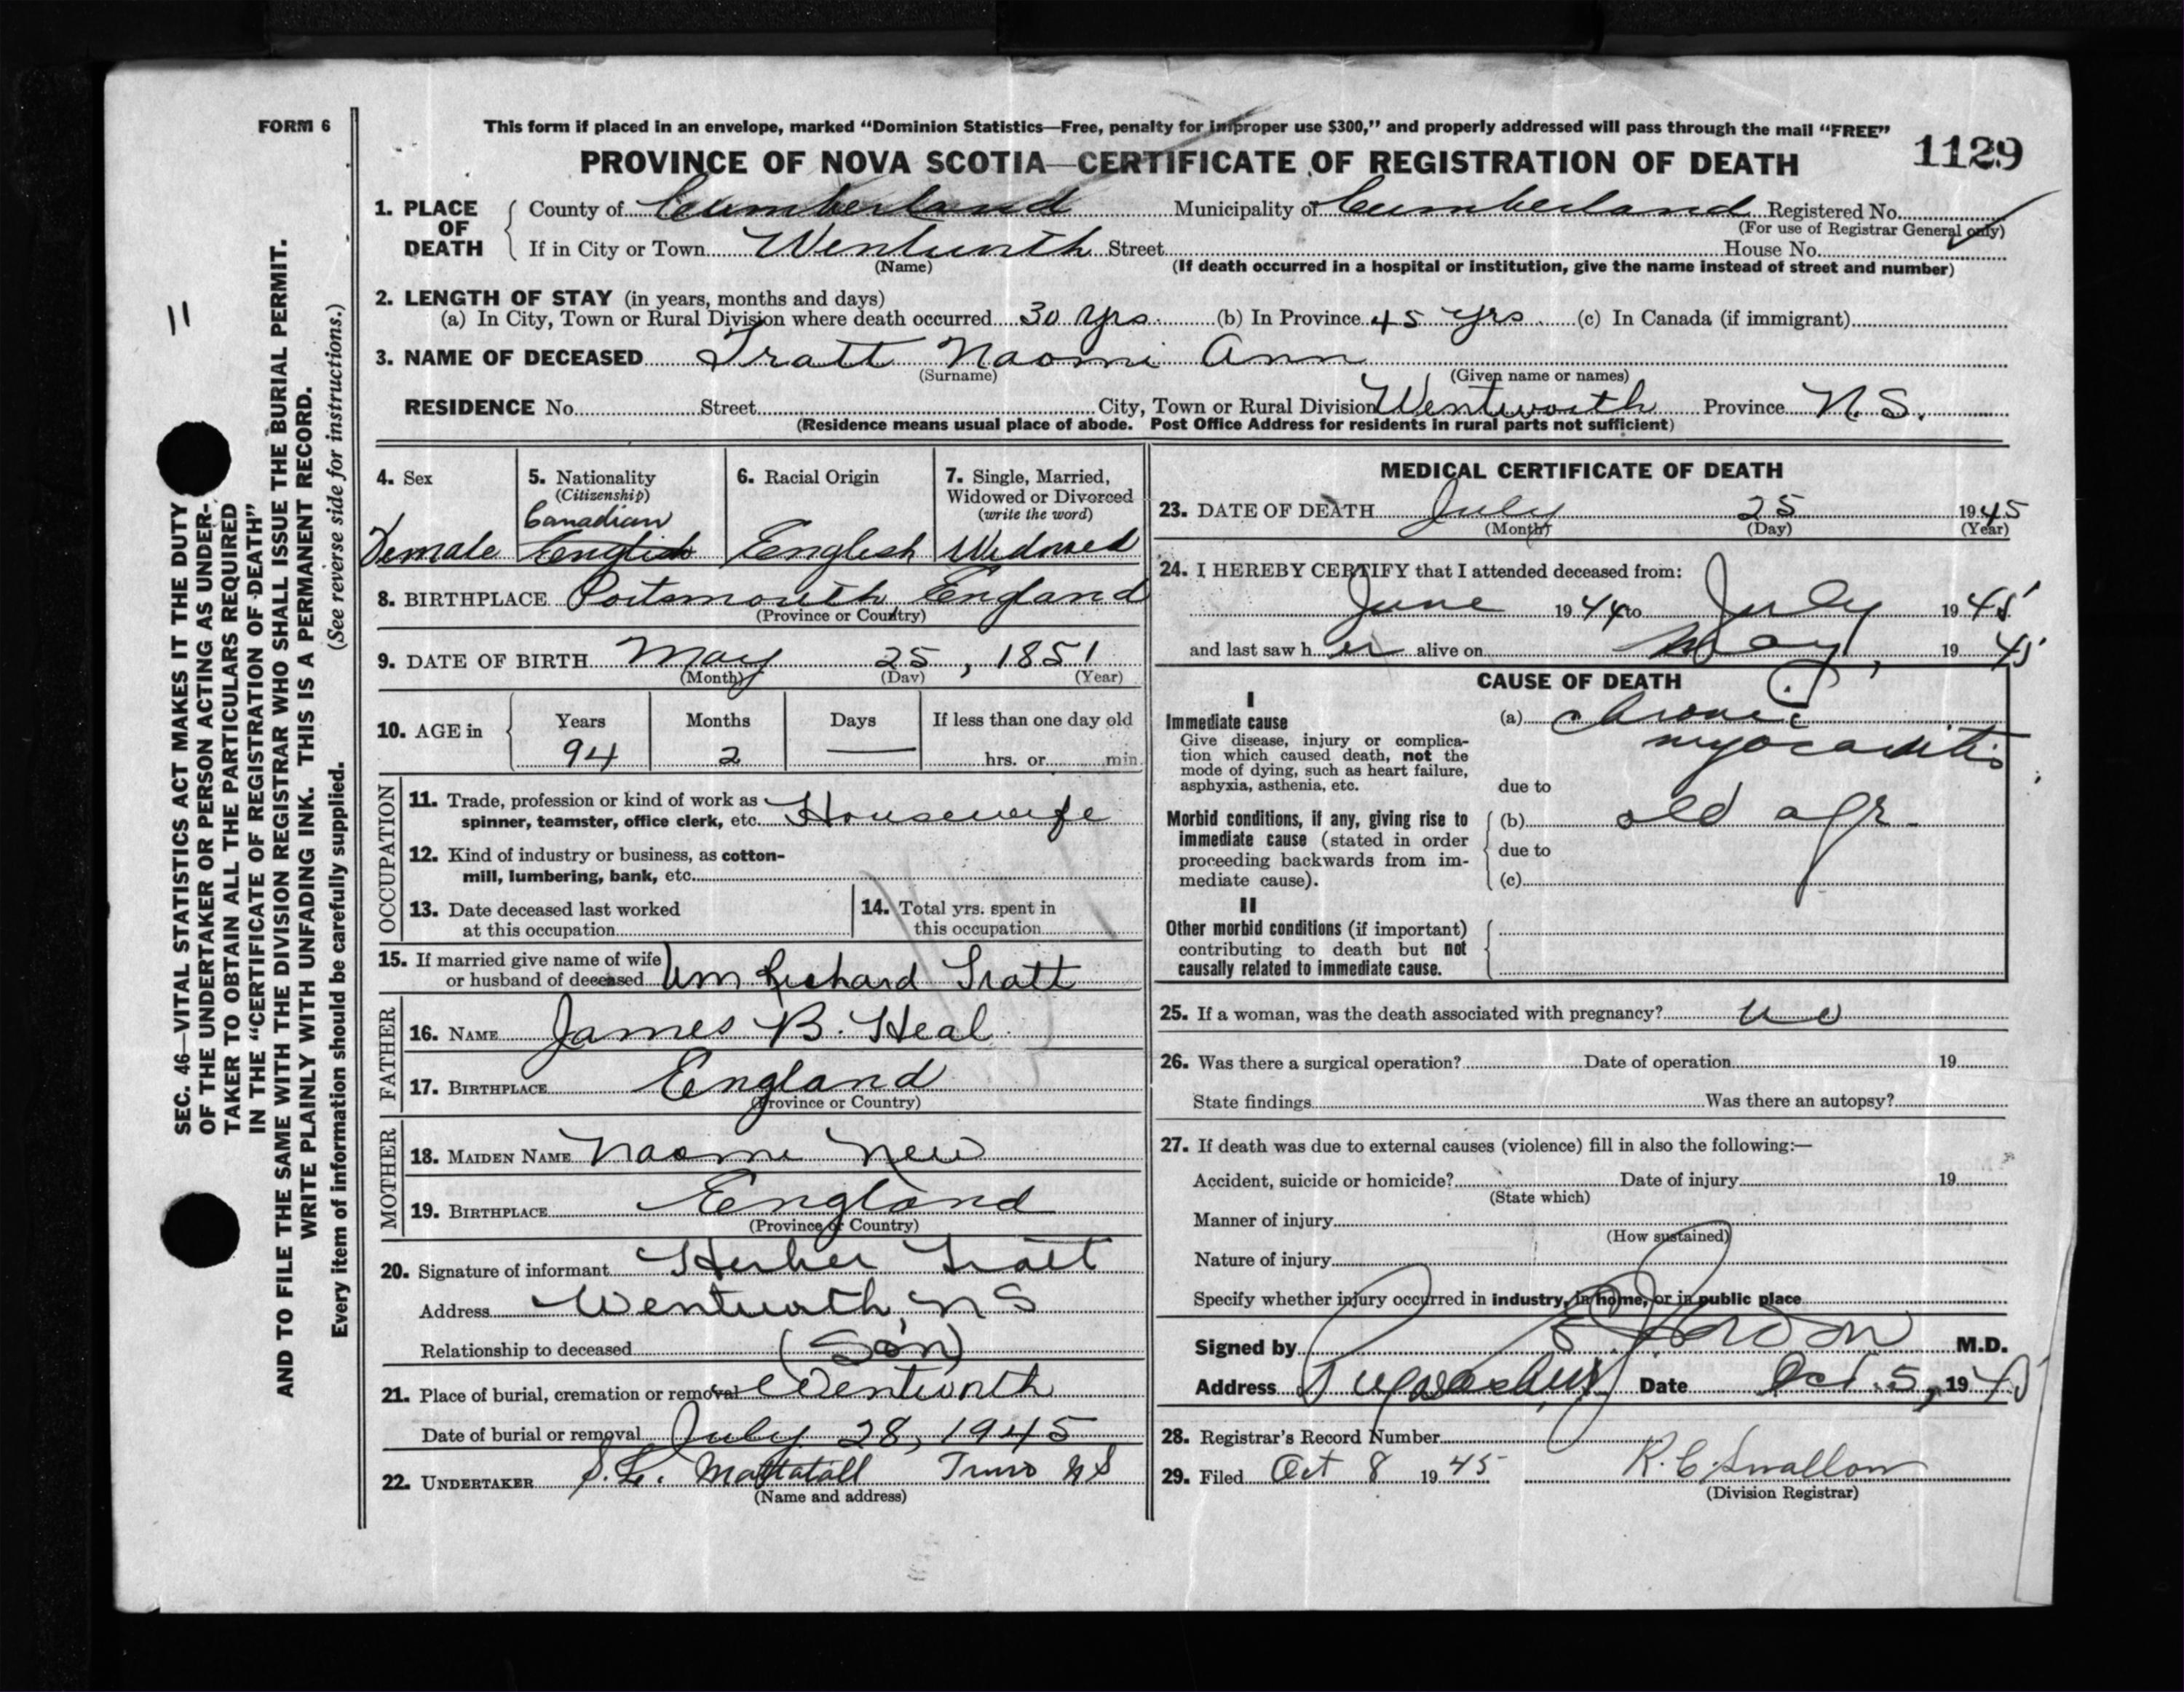 FORM 6
This form if placed in an envelope, marked “Dominion Statistics—Free, penalty for improper use $300,” and properly addressed will pass through the mail “FREE”
PROVINCE OF NOVA SCOTIA—CERTIFICATE OF REGISTRATION OF DEATH
1129
11
SEC. 46—VITAL STATISTICS ACT MAKES IT THE DUTY
OF THE UNDERTAKER OR PERSON ACTING AS UNDER-
TAKER TO OBTAIN ALL THE PARTICULARS REQUIRED
IN THE “CERTIFICATE OF REGISTRATION OF DEATH”
AND TO FILE THE SAME WITH THE DIVISION REGISTRAR WHO SHALL ISSUE THE BURIAL PERMIT.
WRITE PLAINLY WITH UNFADING INK. THIS IS A PERMANENT RECORD.
Every item of information should be carefully supplied. (See reverse side for instructions.)
1. PLACE OF DEATH
County of Cumberland Municipality of Cumberland Registered No.
(For use of Registrar General only)
If in City or Town Wentworth Street House No.
(Name) (If death occurred in a hospital or institution, give the name instead of street and number)
2. LENGTH OF STAY (in years, months and days)
(a) In City, Town or Rural Division where death occurred 30 yrs. (b) In Province 45 yrs. (c) In Canada (if immigrant)
3. NAME OF DECEASED Tratt Naomi Ann
(Surname) (Given name or names)
RESIDENCE No. Street City, Town or Rural Division Wentworth Province N.S.
(Residence means usual place of abode. Post Office Address for residents in rural parts not sufficient)
4. Sex
Female
5. Nationality
(Citizenship)
Canadian
English
6. Racial Origin
English
7. Single, Married,
Widowed or Divorced
(write the word)
Widowed
8. BIRTHPLACE Portsmouth, England
(Province or Country)
9. DATE OF BIRTH May 25, 1851
(Month) (Day) (Year)
10. AGE in Years Months Days If less than one day old
94 2 — hrs. or min.
OCCUPATION
11. Trade, profession or kind of work as
spinner, teamster, office clerk, etc. Housewife
12. Kind of industry or business, as cotton-
mill, lumbering, bank, etc.
13. Date deceased last worked
at this occupation
14. Total yrs. spent in
this occupation
15. If married give name of wife
or husband of deceased Wm Richard Tratt
FATHER
16. NAME James B. Heal
17. BIRTHPLACE England
(Province or Country)
MOTHER
18. MAIDEN NAME Naomi New
19. BIRTHPLACE England
(Province or Country)
20. Signature of informant Tratt
Address Wentworth, NS
Relationship to deceased (Son)
21. Place of burial, cremation or removal Wentworth
Date of burial or removal July 28, 1945
22. UNDERTAKER S.L. Mattatall Truro NS
(Name and address)
MEDICAL CERTIFICATE OF DEATH
23. DATE OF DEATH July 25 1945
(Month) (Day) (Year)
24. I HEREBY CERTIFY that I attended deceased from:
June 1944 to July 1945
and last saw her alive on May, 1945
CAUSE OF DEATH
I
Immediate cause
Give disease, injury or complica-
tion which caused death, not the
mode of dying, such as heart failure,
asphyxia, asthenia, etc.
(a) chronic
myocarditis
due to
Morbid conditions, if any, giving rise to
immediate cause (stated in order
proceeding backwards from im-
mediate cause).
(b) old age
due to
(c)
II
Other morbid conditions (if important)
contributing to death but not
causally related to immediate cause.
25. If a woman, was the death associated with pregnancy? no
26. Was there a surgical operation? Date of operation 19
State findings Was there an autopsy?
27. If death was due to external causes (violence) fill in also the following:—
Accident, suicide or homicide? Date of injury 19
(State which)
Manner of injury
(How sustained)
Nature of injury
Specify whether injury occurred in industry, in home, or in public place
Signed by M.D.
Address Pugwash, NS Date Oct. 5, 1945
28. Registrar's Record Number
29. Filed Oct 8 1945 R.C. Swallow
(Division Registrar)